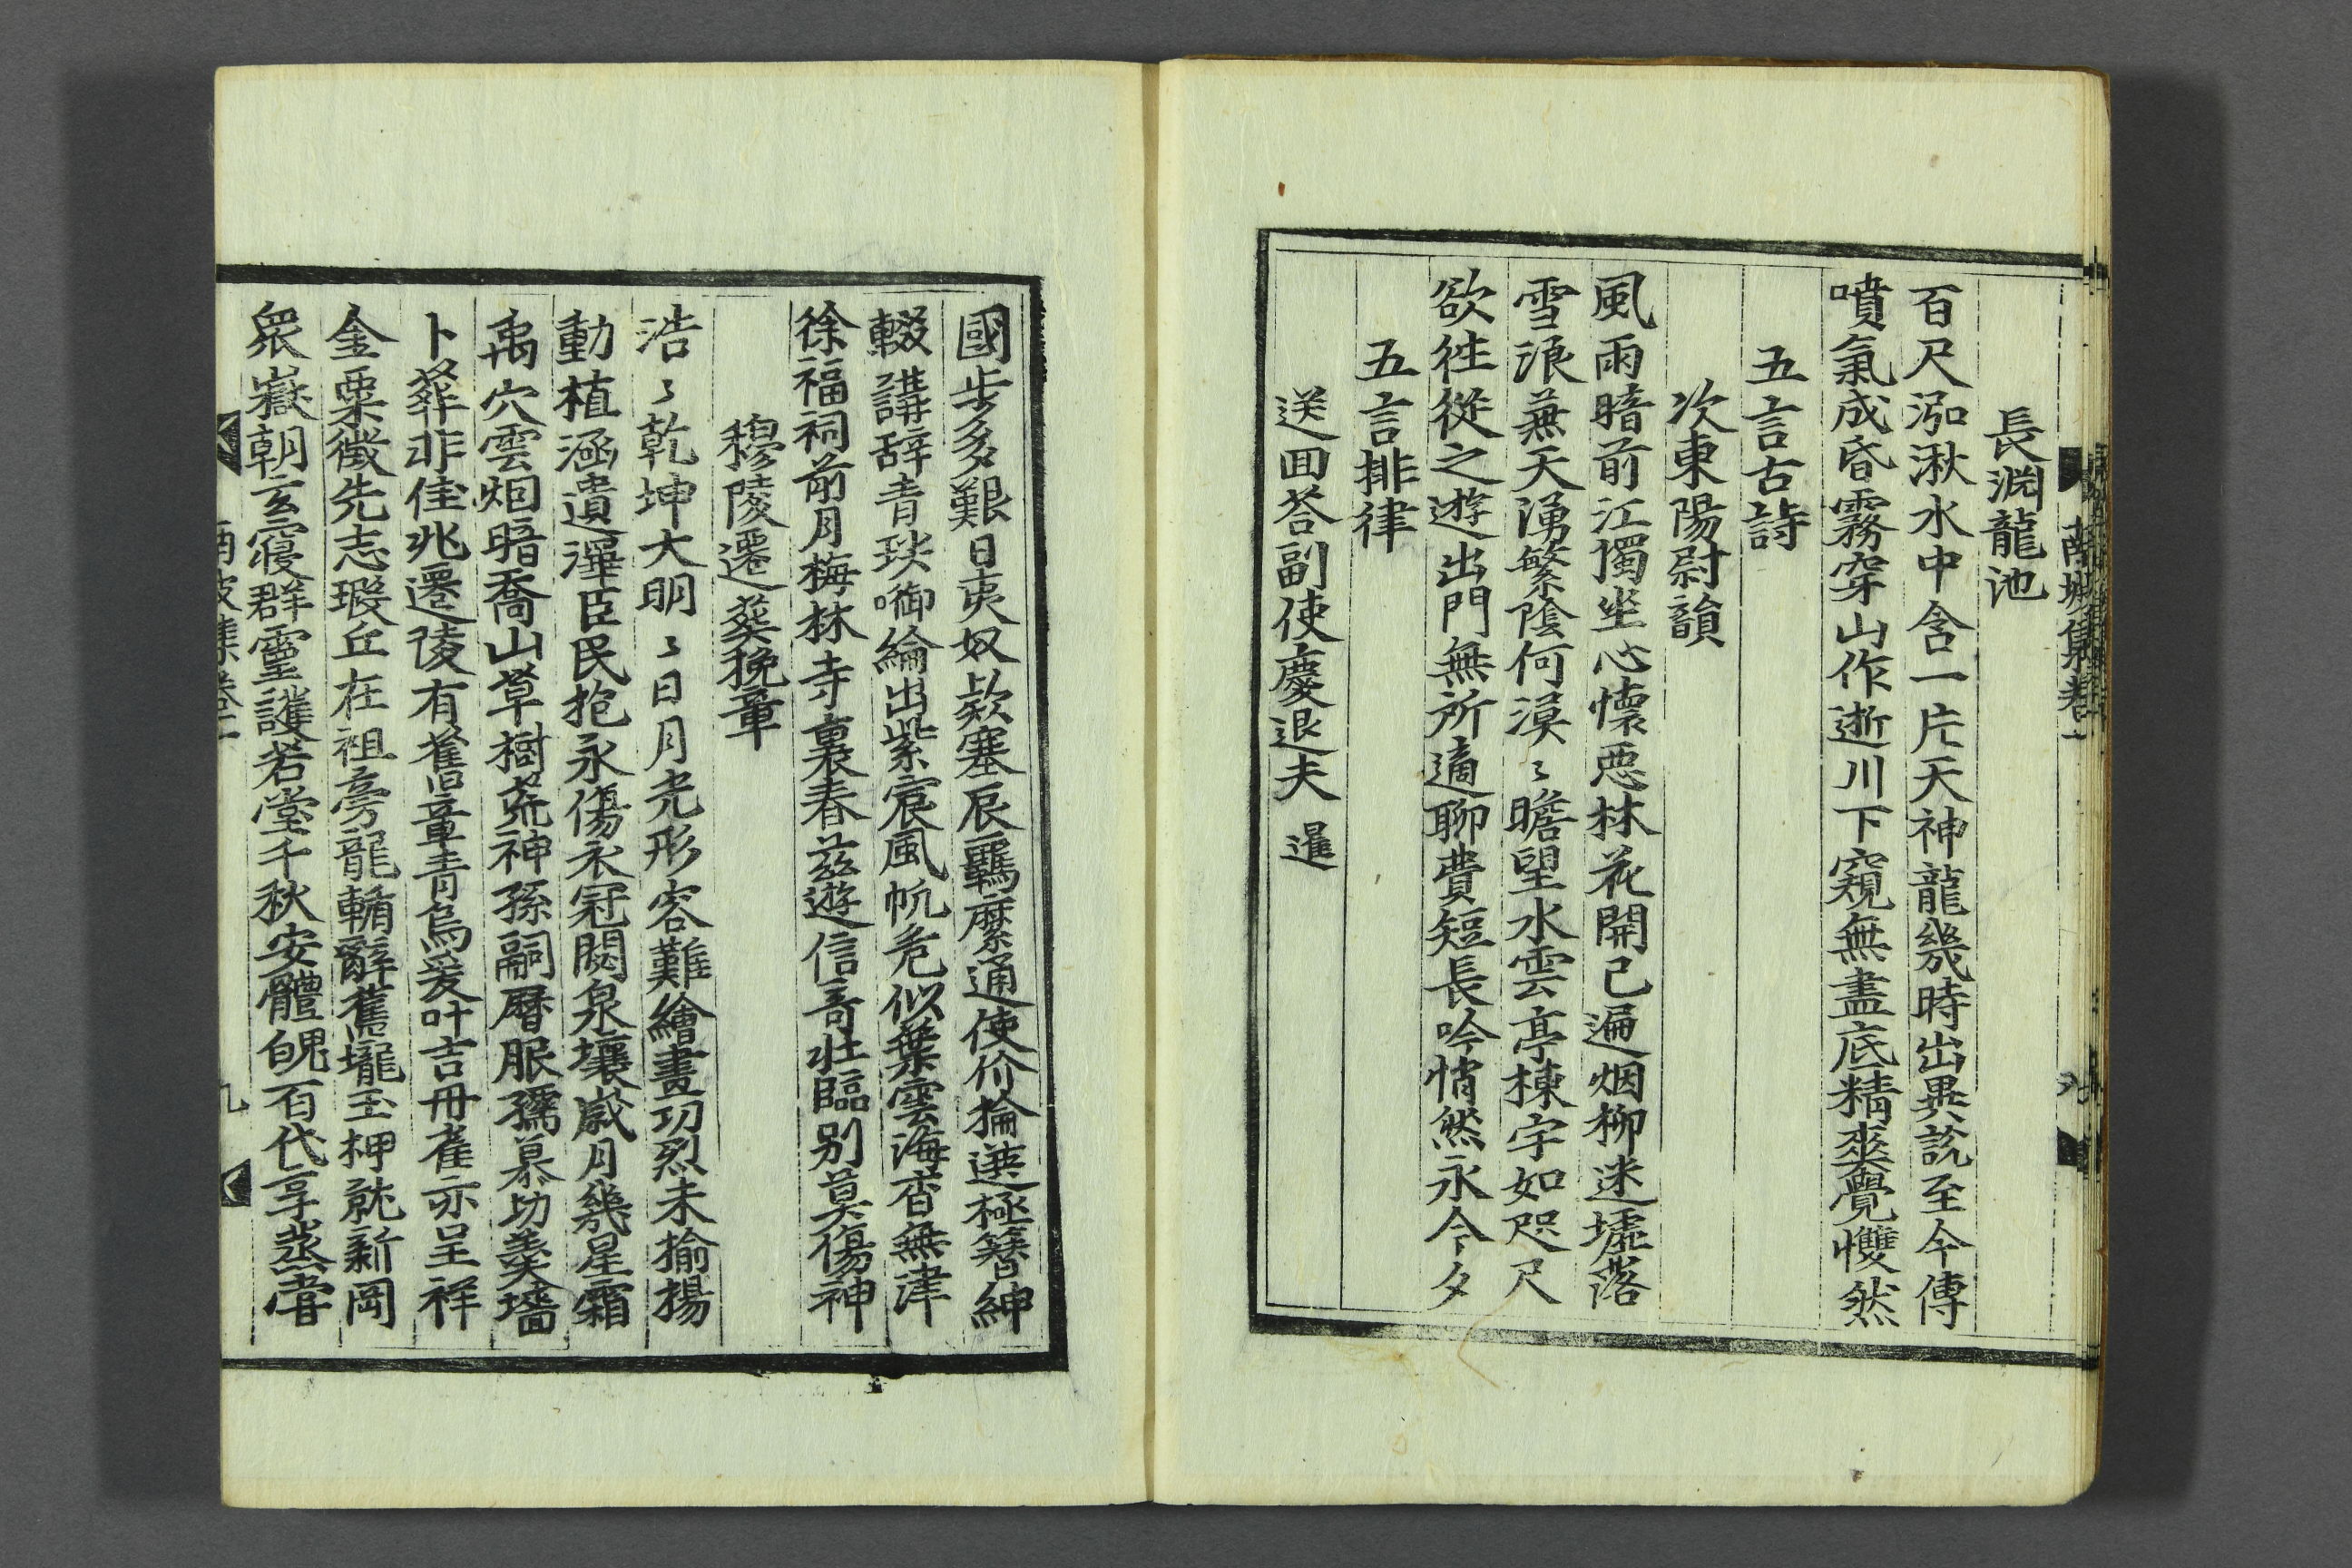 長淵龍池
百尺泓湫水中含一片天神龍幾時出異說至今傳
噴氣成昏霧穿山作逝川下窺無盡底精爽覺戄然
五言古詩
次東陽尉韻
風雨暗前江獨坐心懷惡林花開已遍烟柳迷墟落
雪浪蕪天湧繁陰何漠〻瞻望水雲亭棟宇如咫尺
欲徃從之遊出門無所適聊費短長吟悄然永今夕
五言排律
送回答副使慶退夫 暹
國步多艱日夷奴欵塞辰羈縻通使价掄選極簪紳
輟講辞青琰啣綸出紫宸風帆危似葉雲海杳無津
徐福祠前月梅林寺裏春茲遊信奇壯臨別莫傷神
穆陵遷葬挽章
浩〻乾坤大明〻日月光形容難繪畫功烈未揄揚
動植涵遺澤臣民抱永傷衣冠閟泉壤歲月幾星霜
禹穴雲烟暗喬山草樹荒神孫嗣曆服孺慕切羹墻
卜葬非佳兆遷陵有舊章青烏爰叶吉丹雀亦呈祥
金粟徵先志瑕丘在祖旁龍輴辭舊壠玉柙就新岡
衆嶽朝玄寢群靈護若堂千秋安體魄百代享烝嘗